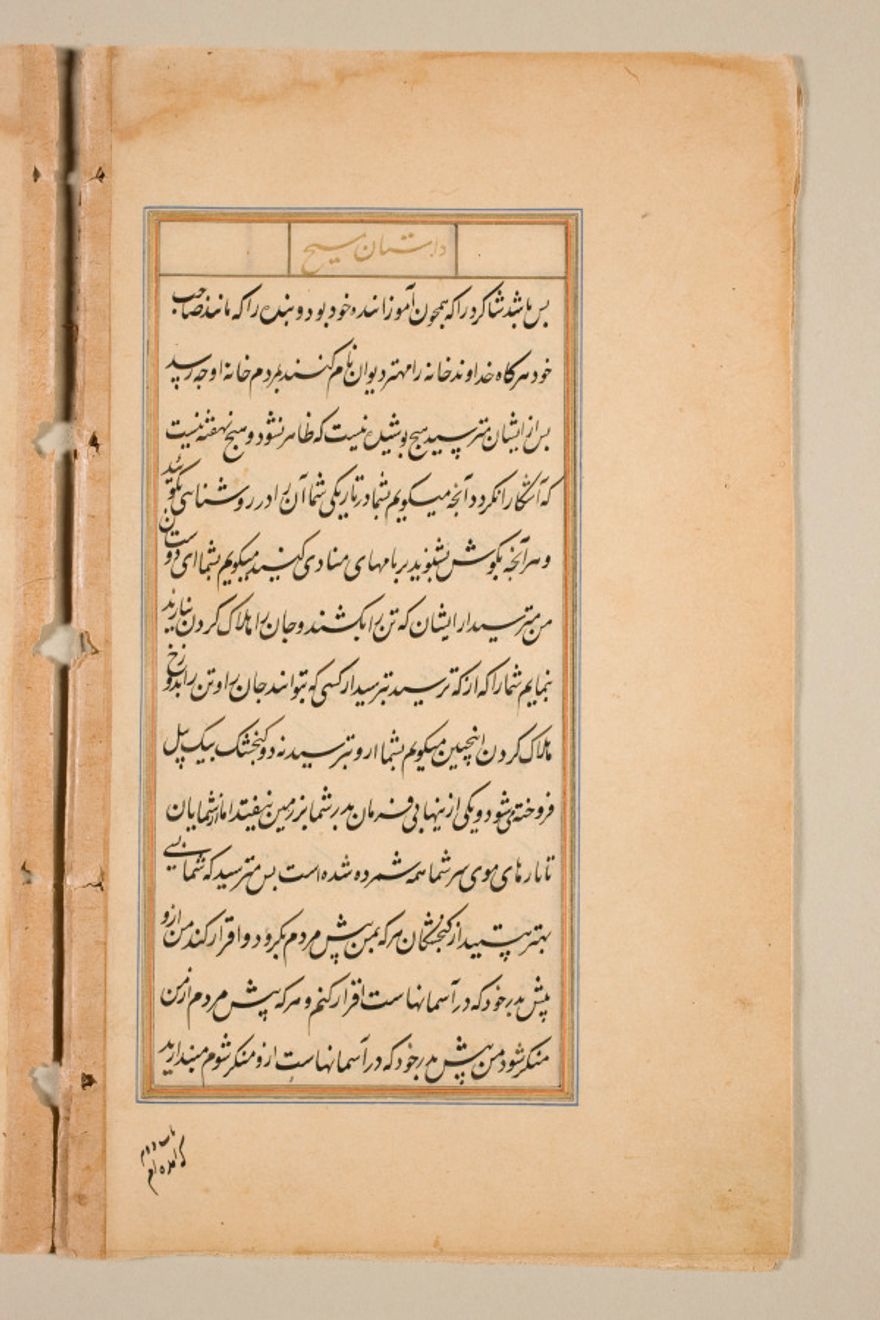 داستان مسیح
بس باشد شاکرد را که همچون آموزاننده خود بود و بنده را که مانند صاحب
خود هرکاه خداوند خانه را مهتر دیوان نام کنند بمردم خانه او چه رسد
بس از ایشان مترسید هیچ بوشیده نیست که ظاهر نشود و هیچ نهفته نیست
که آشکارا نکردد آنچه میکویم بشما در تاریکی شما آن را در روشنایی بکوئید
و هر آنچه بکوش بشنوید بر بامهای منادی کنید میکویم بشما ای دوستان
من مترسید از ایشان که تن را بکشند و جان را هلاک کردن نیارند
بنمایم شما را که از که ترسید بترسید از کسی که بتوانند جان را و تن را بدوزخ
هلاک کردن اینچنین میکویم بشما ازو بترسید نه دو کنجشک بیک پل
فروخته میشود و یکی از ینها بی فرمان بدر شما بزمین نیفتد اما از شمایان
تا تارهای موی سر شما همه شمرده شده است بس مترسید که شما بسی
بهتر هستید از کنجشکان هر که بمن پیش مردم بکرود و اقرار کند من ازو
پیش بدر خود که در آسمانهاست اقرار کنم و هر که پیش مردم از من
منکر شود من پیش بدر خود که در آسمانهاست ازو منکر شوم مپندارید
که آمده ام